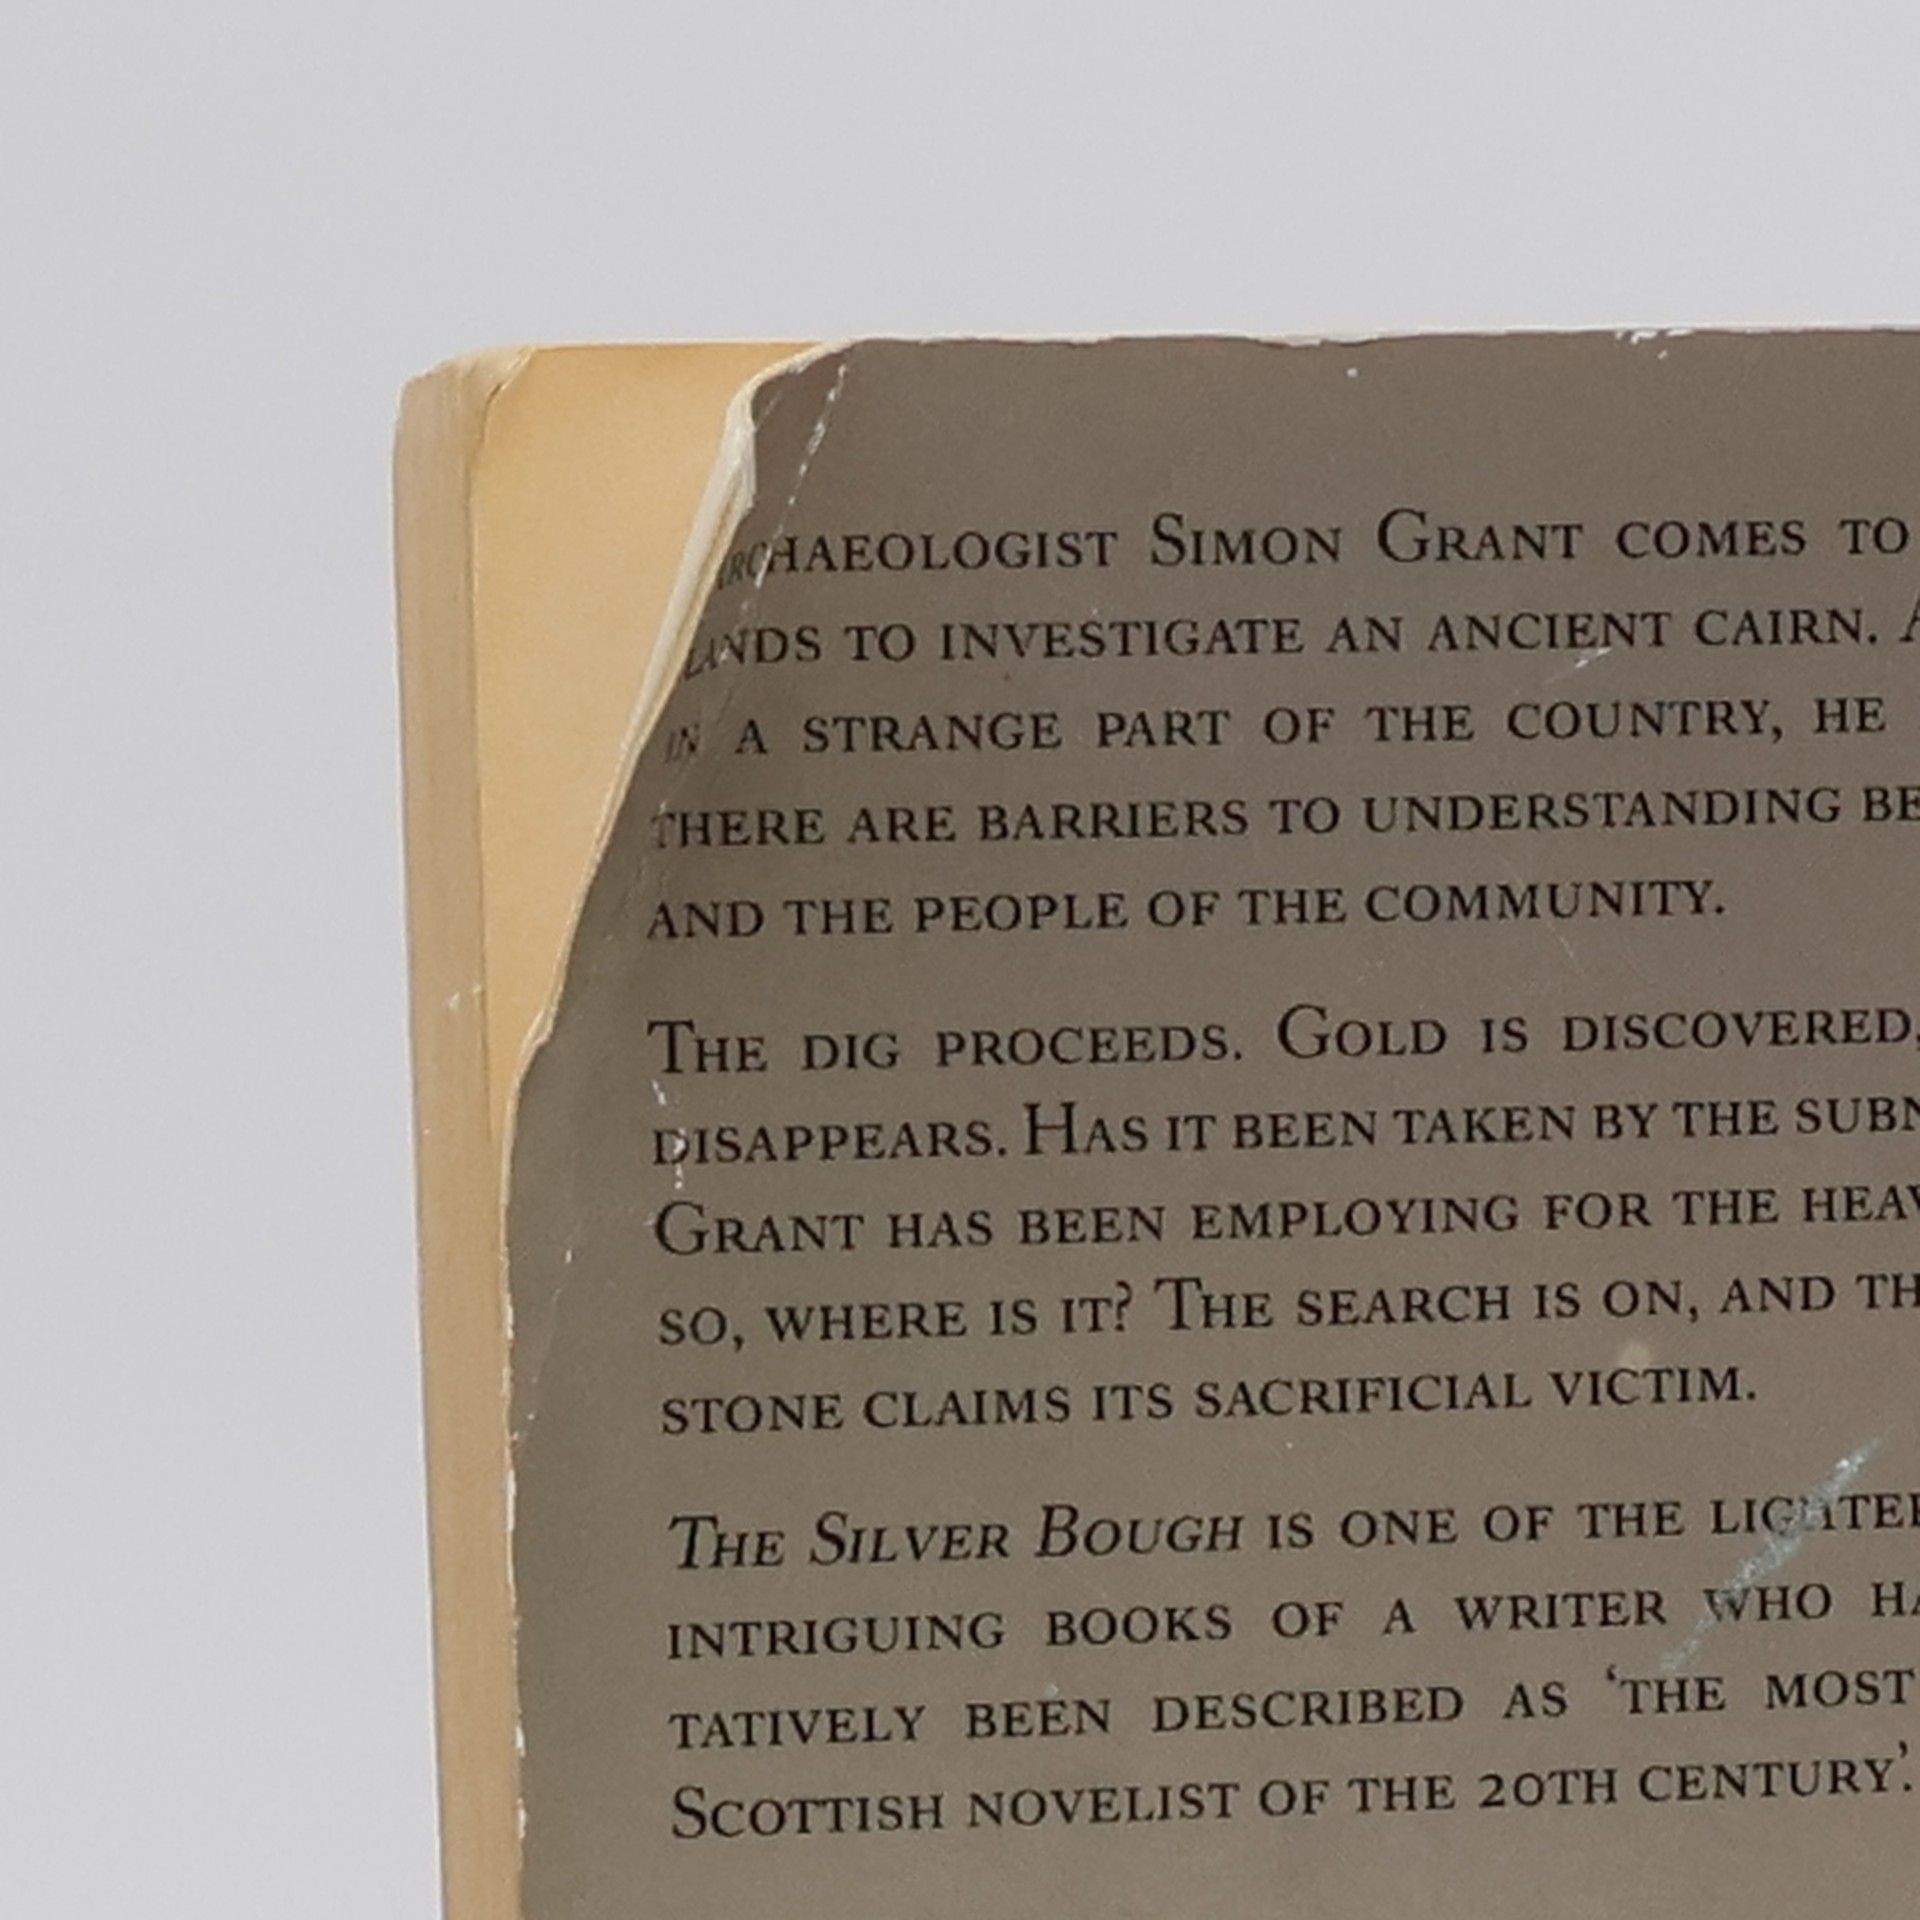 ARCHAEOLOGIST SIMON GRANT COMES TO
LANDS TO INVESTIGATE AN ANCIENT CAIRN.
IN A STRANGE PART OF THE COUNTRY, HE
THERE ARE BARRIERS TO UNDERSTANDING BE
AND THE PEOPLE OF THE COMMUNITY.
THE DIG PROCEEDS. GOLD IS DISCOVERED,
DISAPPEARS. HAS IT BEEN TAKEN BY THE SUBN
GRANT HAS BEEN EMPLOYING FOR THE HEAV
SO, WHERE IS IT? THE SEARCH IS ON, AND TH
STONE CLAIMS ITS SACRIFICIAL VICTIM.
THE SILVER BOUGH IS ONE OF THE LIGHTER
INTRIGUING BOOKS OF A WRITER WHO HA
TATIVELY BEEN DESCRIBED AS ‘THE MOST
SCOTTISH NOVELIST OF THE 20TH CENTURY’.